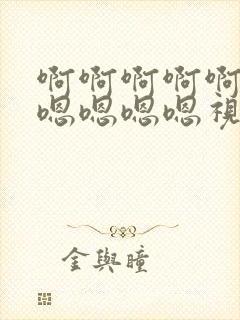 啊啊啊啊啊
嗯嗯嗯嗯視
金與瞳